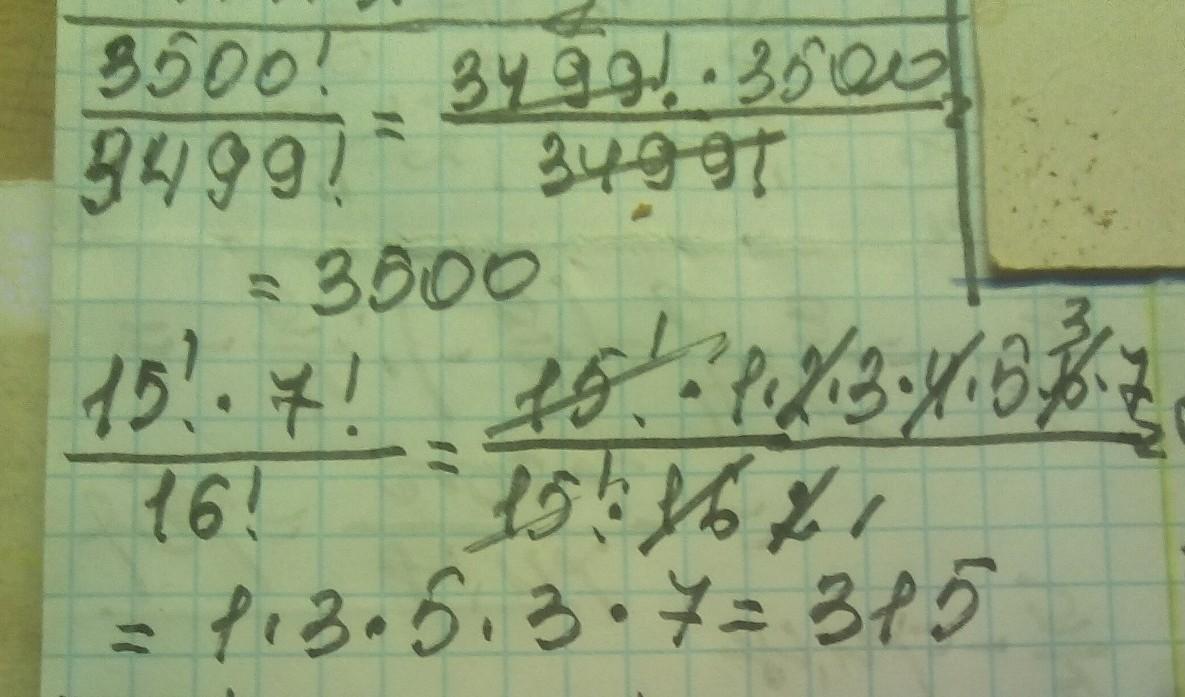 3500! / 3499! = 3499! · 3500 / 3499! =
= 3500
15! · 7! / 16! = 15! · 1 · 2 · 3 · 4 · 5 · 6 3 · 7 / 15! · 16 2 1 =
= 1 · 3 · 5 · 3 · 7 = 315